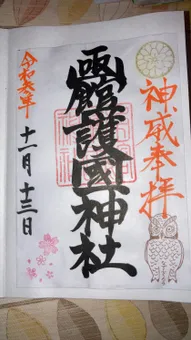 神威奉拝
函館護國神社
令和参年
十一月十三日